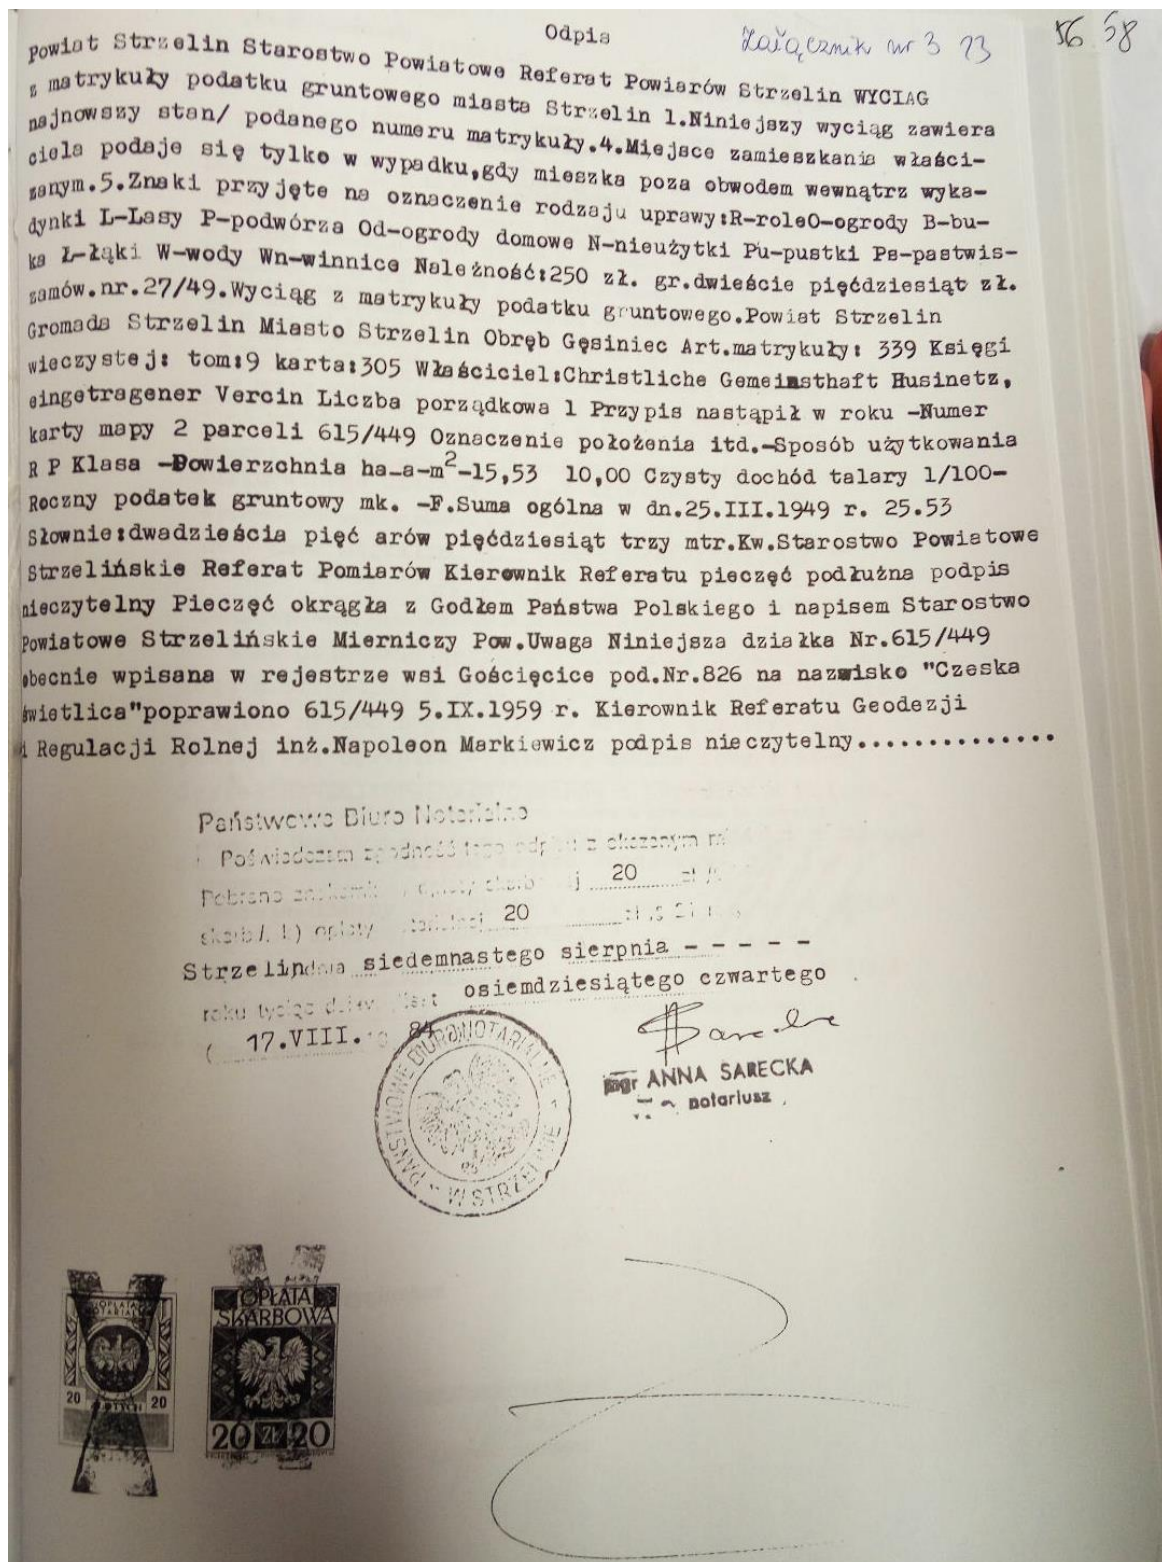 Odpis
Załącznik nr 3 23
56 58
Powiat Strzelin Starostwo Powiatowe Referat Powiarów Strzelin WYCIAG
z matrykuły podatku gruntowego miasta Strzelin 1.Niniejszy wyciąg zawiera
najnowszy stan/ podanego numeru matrykuły.4.Miejsce zamieszkania właści-
ciela podaje się tylko w wypadku,gdy mieszka poza obwodem wewnątrz wyka-
zanym.5.Znaki przyjęte na oznaczenie rodzaju uprawy:R-roleO-ogrody B-bu-
dynki L-Lasy P-podwórza Od-ogrody domowe N-nieużytki Pu-pustki Ps-pastwis-
ka Ł-łąki W-wody Wn-winnice Należność:250 zł. gr.dwieście pięćdziesiąt zł.
zamów.nr.27/49.Wyciąg z matrykuły podatku gruntowego.Powiat Strzelin
Gromada Strzelin Miasto Strzelin Obręb Gęsiniec Art.matrykuły: 339 Księgi
wieczystej: tom:9 karta:305 Właściciel:Christliche Gemeinsthaft Husinetz,
eingetragener Vercin Liczba porządkowa 1 Przypis nastąpił w roku -Numer
karty mapy 2 parceli 615/449 Oznaczenie położenia itd.-Sposób użytkowania
R P Klasa -Powierzchnia ha-a-m2-15,53 10,00 Czysty dochód talary 1/100-
Roczny podatek gruntowy mk. -F.Suma ogólna w dn.25.III.1949 r. 25.53
Słownie:dwadzieścia pięć arów pięćdziesiąt trzy mtr.Kw.Starostwo Powiatowe
Strzelińskie Referat Pomiarów Kierownik Referatu pieczęć podłużna podpis
nieczytelny Pieczęć okrągła z Godłem Państwa Polskiego i napisem Starostwo
Powiatowe Strzelińskie Mierniczy Pow.Uwaga Niniejsza działka Nr.615/449
obecnie wpisana w rejestrze wsi Gościęcice pod.Nr.826 na nazwisko "Czeska
świetlica"poprawiono 615/449 5.IX.1959 r. Kierownik Referatu Geodezji
i Regulacji Rolnej inż.Napoleon Markiewicz podpis nieczytelny..............
Państwowe Biuro Notarialne
Poświadczam zgodność tego odpisu z okazanym
Pobrano 20 zł
skarb opłaty 20
Strzelin dnia siedemnastego sierpnia - - - - -
roku tysiąc osiemdziesiątego czwartego
( 17.VIII. 84
PAŃSTWOWE BIURO NOTARIALNE
W STRZELINIE
Sarecka
mgr ANNA SARECKA
notariusz
OPŁATA
NOTARIALNA
20 ZŁOTYCH 20
OPŁATA
SKARBOWA
20 ZŁ 20